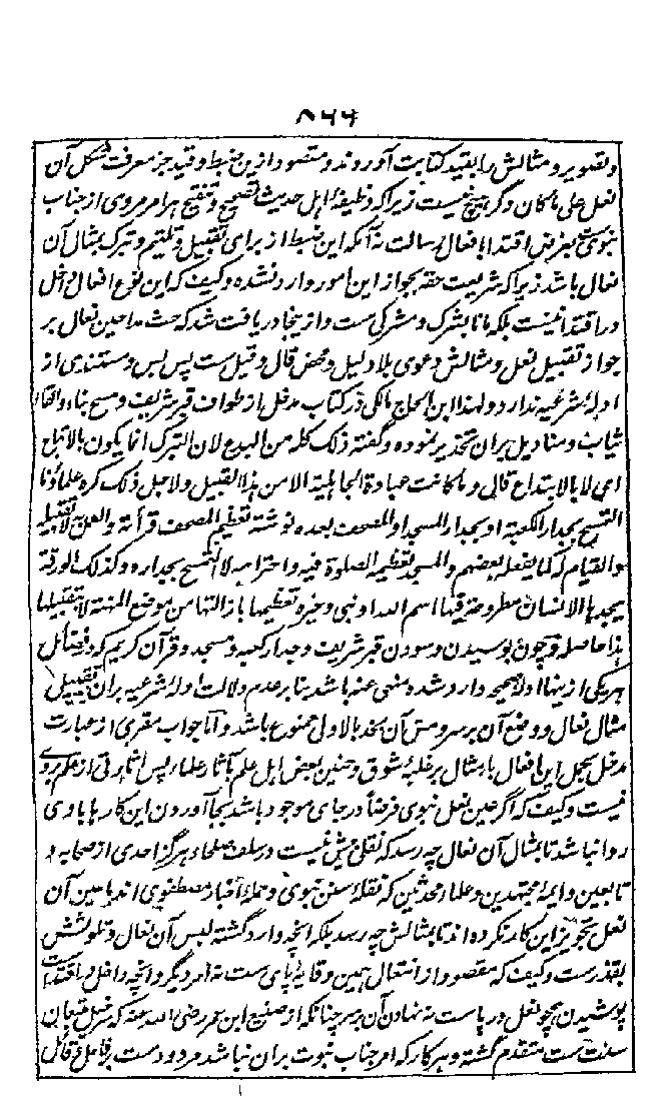 ۸۶۶
و تصویر و مثالش را بقید کتابت آوردند و مقصود ازین ضبط و قید جز معرفت شکل آن
نعل علی ما کان دگر هیچ نیست زیرا که وظیفهٔ اهل حدیث تصحیح و تنقیح هر امر مروی از جناب
نبوی بغرض اقتدا بافعال رسالت نه آنکه این ضبط از برای تقبیل و تلثیم و تبرک بمثال آن
نعال باشد زیرا که شریعت حقه بجواز این امور وارد نشده و کیف که این نوع افعال داخل
در اقتدا نیست بلکه مانا بشرک و مشرکی ست و از ینجا دریافت شد که حث مداحین نعال بر
جواز تقبیل نعل و مثالش دعوی بلا دلیل و محض قال و قیل ست پس بس و مستندی از
ادلهٔ شرعیه ندارد و لهذا ابن الحاج مالکی در کتاب مدخل از طواف قبر شریف و مسح بناء و القاء
ثیاب و منادیل بران تحذیر نموده و گفته ذلک کله من البدع لان التبرک انما یکون بالاتباع
ای لا بالابتداع قال و ما کانت عبادة الجاهلیة الا من هذا القبیل و لاجل ذلک کره علماؤنا
التمسح بجدار الکعبة او بجدار المسجد او المصحف بعده نوشته تعظیم المصحف قرأته و العمل لا تقبیله
و القیام له کما یفعله بعضهم و المسجد تعظیمه الصلوة فیه و احترامه لا التمسح بجداره و کذلک الورقة
یجدها الانسان مطروحة فیها اسم الله او نبی و غیره تعظیمها بازالتها من موضع المهنة لا تقبیلها
هذا حاصله و چون بوسیدن و سودن قبر شریف و جدار کعبه و مسجد و قرآن کریم که در فضائل
هر یکی از ینها ادلهٔ صحیحه وارد شده منهی عنه باشد بنا بر عدم دلالت ادلهٔ شرعیه بران تقبیل
مثال نعال و وضع آن بر سر و مس آن بخد بالاولی ممنوع باشد و اما جواب مقری از عبارت
مدخل بحمل این افعال بامثال بر غلبهٔ شوق و حنین بعض اهل علم بآثار علما پس اثارتی از علم بروی
نیست و کیف که اگر عین نعل نبوی فرضاً در جای موجود باشد بجا آوردن این کارها با وی
روا نباشد تا بمثال آن نعال چه رسد که نقلی بیش نیست و در سلف صلحا و هرگز احدی از صحابه و
تابعین و ایمهٔ مجتهدین و علماء محدثین که نقلهٔ سنن نبوی و حملهٔ اخبار مصطفوی اند با عین آن
نعل تجویز این کار نکرده اند تا بمثالش چه رسد بلکه آنچه وارد گشته لبس آن نعال و تلوثش
بقذر ست و کیف که مقصود از انتعال همین وقایهٔ پای ست نه امر دیگر و آنچه داخل در اقتدا ست
پوشیدن همچو نعل در پا ست نه نهادن آن بر سر چنانکه از صنیع ابن عمر رضی الله عنه که خیل متبعان
سنت ست متقدم گشته و هر کار که امر جناب نبوت بران نباشد مردود ست بر فاعل و قائل